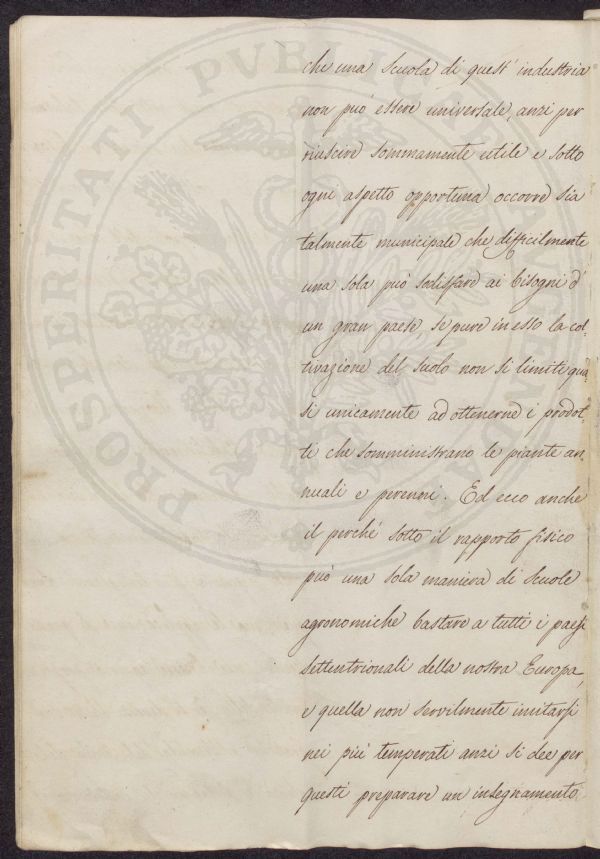 che una Scuola di quest' industria
non può essere universale, anzi per
riuscire sommamente utile e sotto
ogni aspetto opportuna occorre sia
talmente municipale che difficilmente
una sola può sodisfare ai bisogni d'
un gran paese, se pure in esso la col-
tivazione del suolo non si limiti qua-
si unicamente ad ottenerne i prodot-
ti che somministrano le piante an-
nuali e perenni. Ed ecco anche
il perchè sotto il rapporto fisico
può una sola maniera di Scuole
agronomiche bastare a tutti i paesi
settentrionali della nostra Europa,
e quella non servilmente imitarsi
nei più temperati anzi si dee per
questi preparare un insegnamento
PROSPERITATI PVBLICAE AVGENDAE